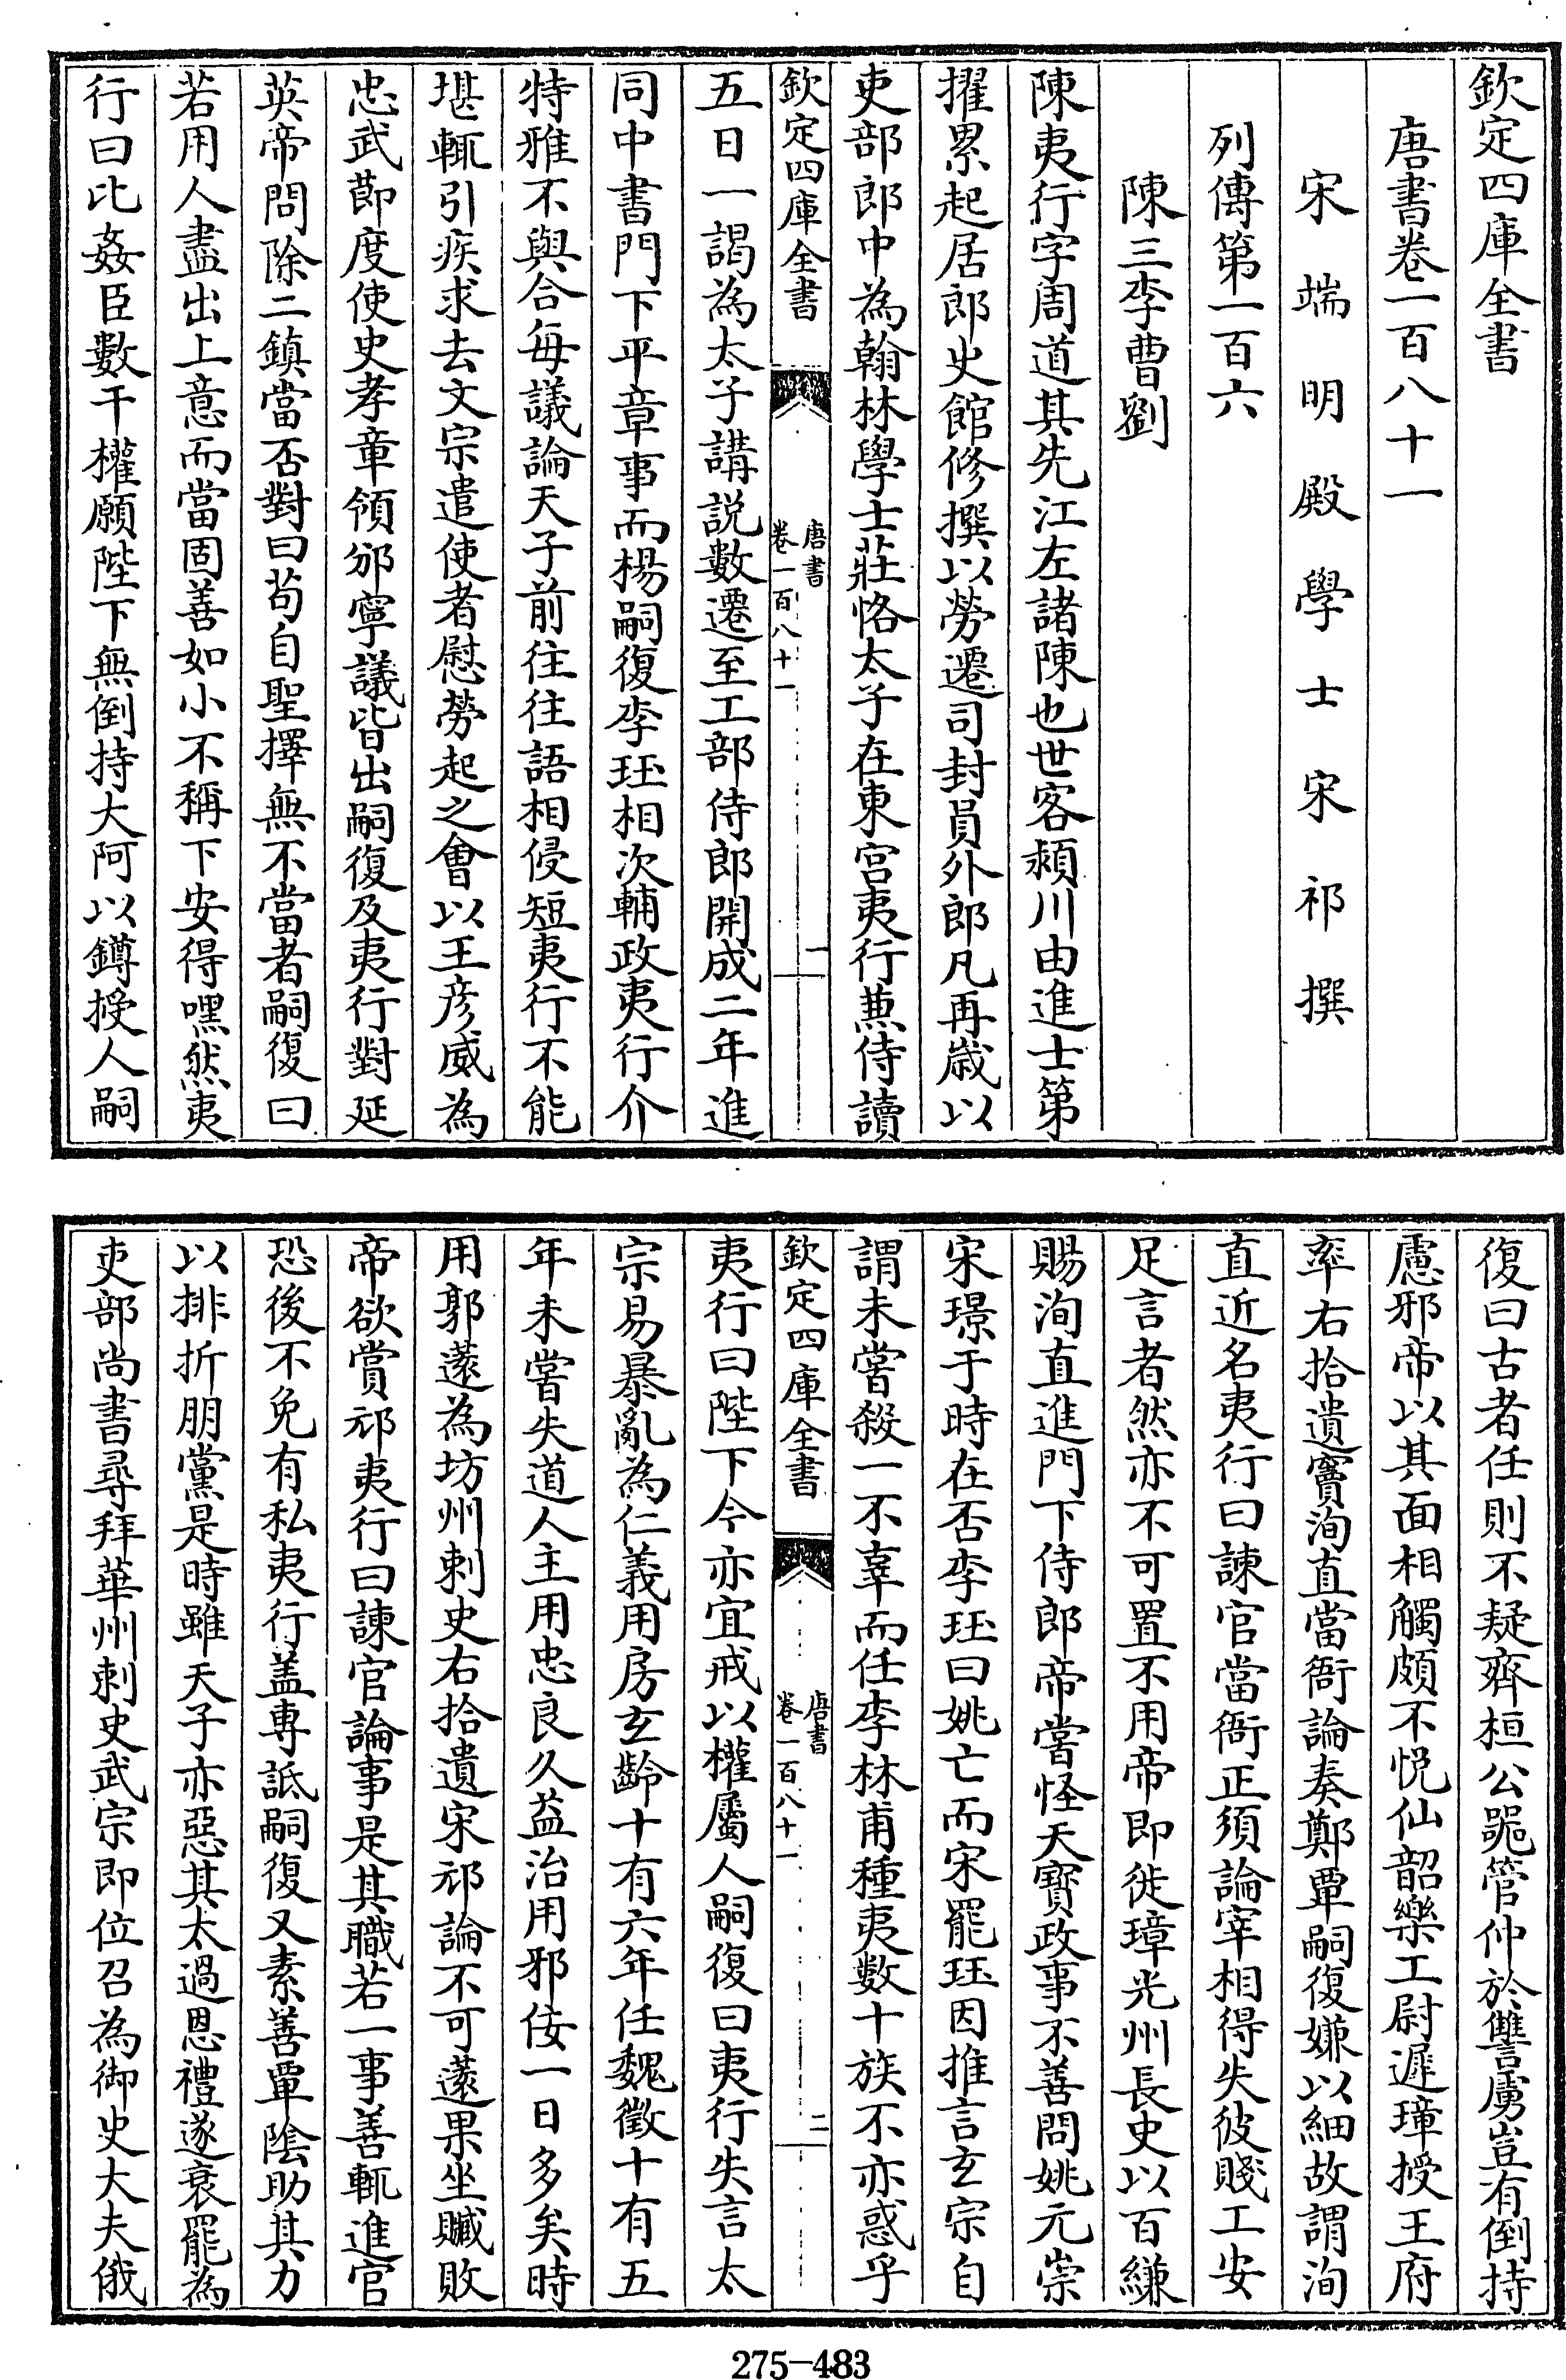 欽定四庫全書
唐書卷一百八十一
宋端明殿學士宋祁撰
列傳第一百六
陳三李曹劉
陳夷行字周道其先江左諸陳也世客潁川由進士第
擢累起居郎史館修撰以勞遷司封員外郎凡再歳以
吏部郎中為翰林學士莊恪太子在東宫夷行兼侍讀
欽定四庫全書
唐書
卷一百八十一
一
五日一謁為太子講説數遷至工部侍郎開成二年進
同中書門下平章事而楊嗣復李珏相次輔政夷行介
特雅不與合每議論天子前往往語相侵短夷行不能
堪輒引疾求去文宗遣使者慰勞起之會以王彦威為
忠武節度使史孝章領邠寧議皆出嗣復及夷行對延
英帝問除二鎮當否對曰苟自聖擇無不當者嗣復曰
若用人盡出上意而當固善如小不稱下安得嘿然夷
行曰比姦臣數干權願陛下無倒持大阿以鐏授人嗣
復曰古者任則不疑齊桓公器管仲於讐虜豈有倒持
慮邪帝以其面相觸頗不悦仙韶樂工尉遲璋授王府
率右拾遺竇洵直當衙論奏鄭覃嗣復嫌以細故謂洵
直近名夷行曰諫官當衙正須論宰相得失彼賤工安
足言者然亦不可置不用帝即徙璋光州長史以百縑
賜洵直進門下侍郎帝嘗怪天寳政事不善問姚元崇
宋璟于時在否李珏曰姚亡而宋罷珏因推言玄宗自
謂未嘗殺一不辜而任李林甫種夷數十族不亦惑乎
欽定四庫全書
唐書
卷一百八十一
二
夷行曰陛下今亦宜戒以權屬人嗣復曰夷行失言太
宗易暴亂為仁義用房玄齡十有六年任魏徵十有五
年未嘗失道人主用忠良久益治用邪佞一日多矣時
用郭薳為坊州刺史右拾遺宋祁論不可薳果坐贓敗
帝欲賞祁夷行曰諫官論事是其職若一事善輒進官
恐後不免有私夷行盖專詆嗣復又素善覃陰助其力
以排折朋黨是時雖天子亦惡其太過恩禮遂衰罷為
吏部尚書尋拜華州刺史武宗即位召為御史大夫俄
275-483